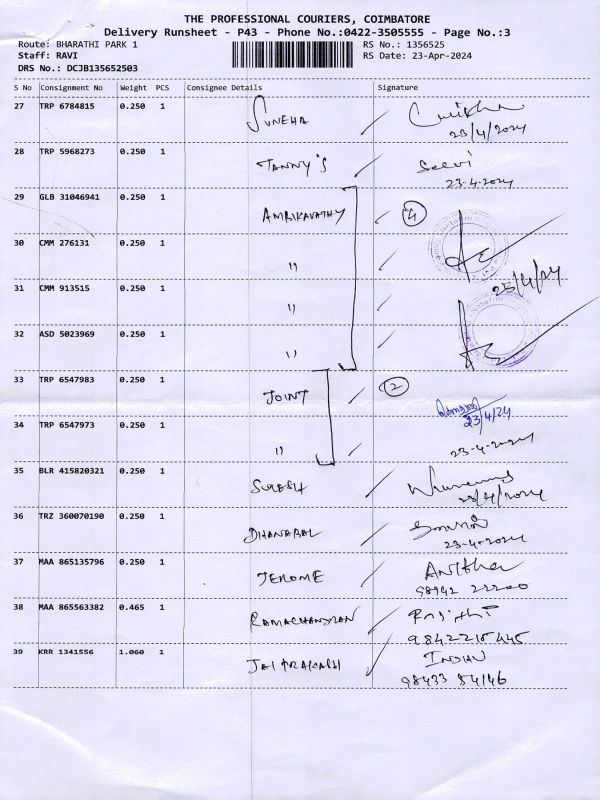 THE PROFESSIONAL COURIERS, COIMBATORE
Delivery Runsheet - P43 - Phone No.:0422-3505555 - Page No.:3
Route: BHARATHI PARK 1 RS No.: 1356525
Staff: RAVI RS Date: 23-Apr-2024
DRS No.: DCJB135652503
S No Consignment No Weight PCS Consignee Details Signature
27 TRP 6784815 0.250 1 SUNEHA
23/4/2024
28 TRP 5968273 0.250 1 TANNY'S Selvi
23-4-2024
29 GLB 31046941 0.250 1 AMBIKAVATHY 4
30 CMM 276131 0.250 1 "
31 CMM 913515 0.250 1 "
32 ASD 5023969 0.250 1 "
33 TRP 6547983 0.250 1 JOINT 2
23/4/24
34 TRP 6547973 0.250 1 " 23-4-2024
35 BLR 415820321 0.250 1 SURESH
23/4/2024
36 TRZ 360070190 0.250 1 DHANABAL
23-4-2024
37 MAA 865135796 0.250 1 JEROME Anitha
98942 22200
38 MAA 865563382 0.465 1 RAMACHANDRAN
9842215445
39 KRR 1341556 1.060 1 JAI PRAKASH INDHU
98433 54146